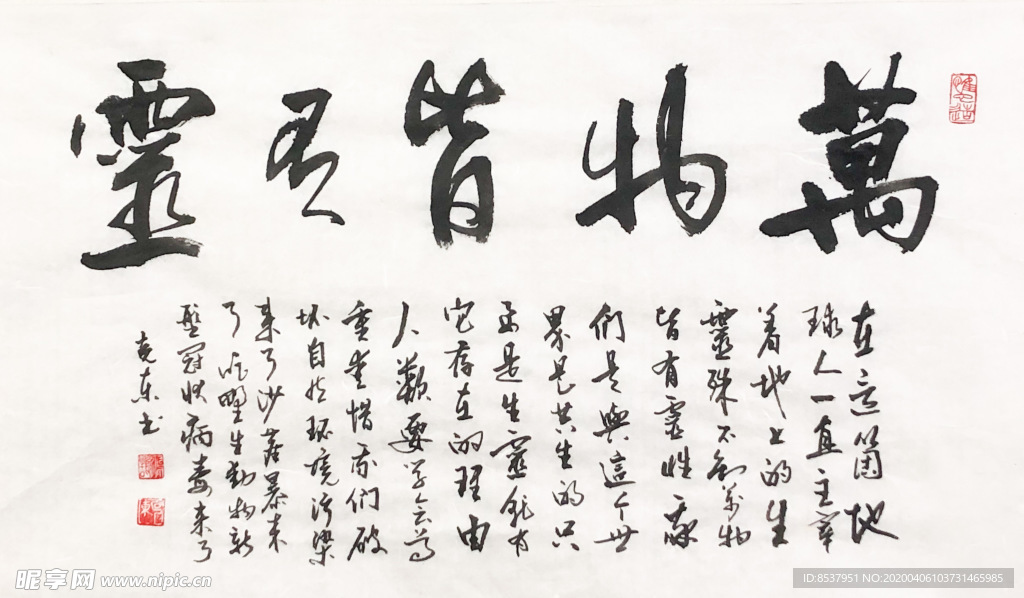 萬物皆有靈
在這箇地
球人一直主宰
着地上的生
靈殊不知萬物
皆有靈性我
們是與這个世
界是共生的只
要是生靈就有
它存在的理由
人類要学会尊
重愛惜我们破
坏自然环境污染
来了沙塵暴来
了吃野生動物新
型冠状病毒来了
克东书
昵享网 www.nipic.cn
ID:8537951 NO:20200406103731465985